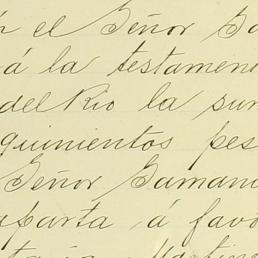 el Señor
á la testamen
del Rio la sum
quinientos pes
Señor Gaman
aparta á favo